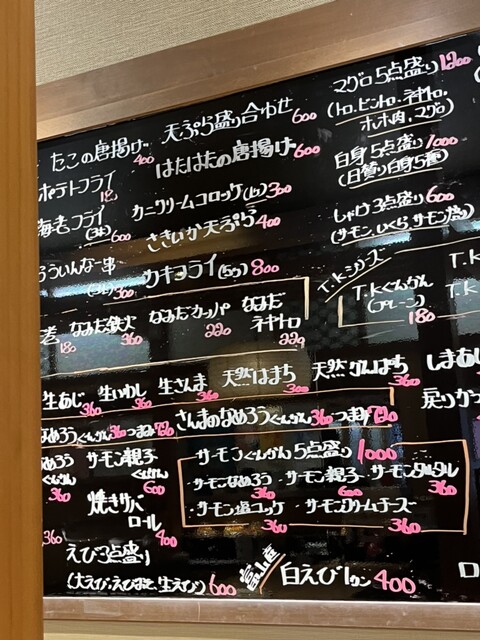 たこの唐揚げ 400
天ぷら盛り合わせ 600
マグロ5点盛り 1200
(トロ、ビントロ、ネギトロ、
ホホ肉、マグロ)
ポテトフライ
はたはたの唐揚げ 600
白身5点盛り 1000
(日替り白身5種)
海老フライ
600
カニクリームコロッケ(1ヶ) 300
さきいか天ぷら 400
しゃけ3点盛り 600
(サーモン、いくら、サーモン塩)
ういんなー串
300
カキフライ(5ヶ) 800
T.Kシリーズ
T.Kぐんかん
(プレーン)
180
T.K
T.K
180
なみだ鉄火
360
なみだカッパ
220
なみだ
ネギトロ
220
生あじ
360
生いわし
360
生さんま
360
天然はまち
300
天然かんぱち
360
しまあじ
なめろうぐんかん 360 つまみ 720
さんまのなめろうぐんかん 360 つまみ 720
戻りかつ
なめろう
ぐんかん
360
サーモン親子
ぐんかん
600
サーモンぐんかん5点盛り 1000
・サーモンなめろう
360
・サーモン親子
600
・サーモンタルタル
360
・サーモン塩ユッケ
360
・サーモンクリームチーズ
360
焼きサバ
ロール
400
360
えび3点盛り
(大えび・えびみそ・生えび) 600
富山産
白えび1カン 400